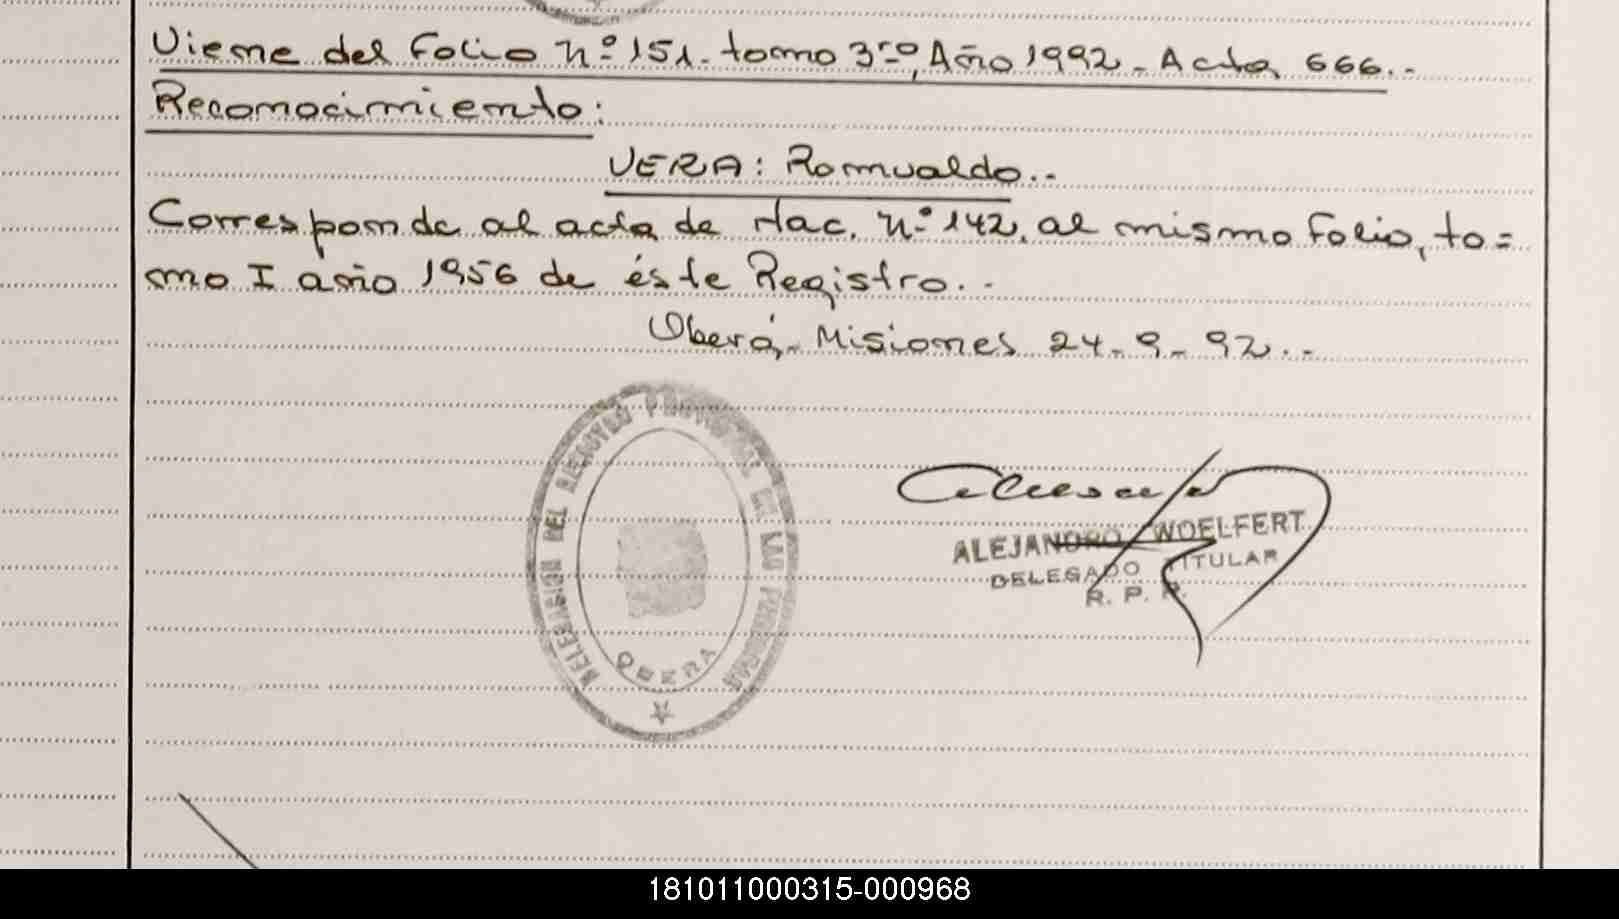 Viene del Folio Nº 151. tomo 3ro, Año 1992 - Acta 666..
Reconocimiento:
VERA: Romualdo..
Corresponde al acta de Nac. Nº 142, al mismo Folio, to=
mo I año 1956 de éste Registro..
Oberá, Misiones 24-9-92..
DELEGACION DEL REGISTRO PROVINCIAL DE LAS PERSONAS
OBERA
ALEJANDRO WOELFERT
DELEGADO TITULAR
R. P. P.
181011000315-000968